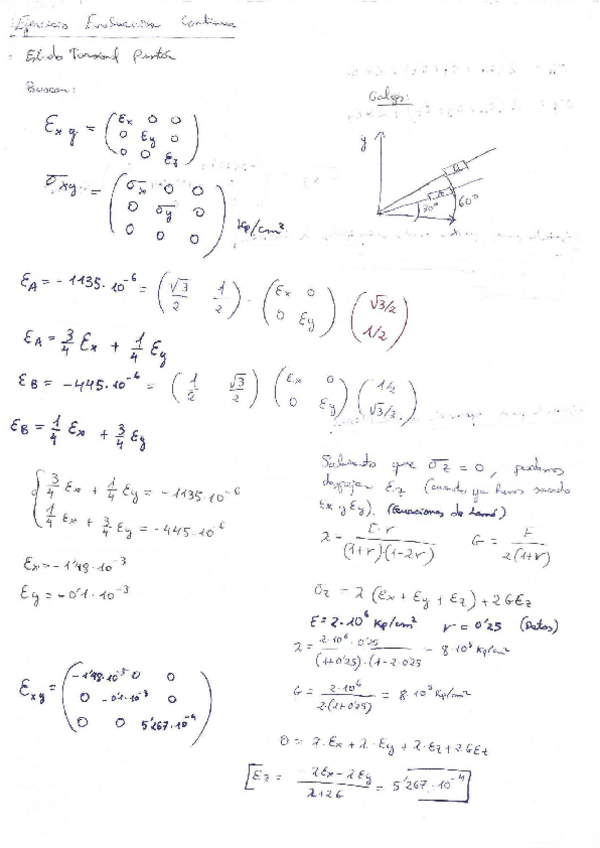 Ejercicio Evaluación Continua
Estado Tensional Puntor
Buscar:
Galgas:
E_xy = (Ex 0 0
0 Ey 0
0 0 Ez)
y
B
A
30°
60°
x
σxy = (σx 0 0
0 σy 0
0 0 0) Kp/cm²
EA = -1135·10^-6 = (√3/2 1/2) · (Ex 0
0 Ey) (√3/2
1/2)
EA = 3/4 Ex + 1/4 Ey
EB = -445·10^-6 = (1/2 √3/2) (Ex 0
0 Ey) (1/2
√3/2)
EB = 1/4 Ex + 3/4 Ey
{3/4 Ex + 1/4 Ey = -1135·10^-6
1/4 Ex + 3/4 Ey = -445·10^-6
Ex = -1'48·10^-3
Ey = -0'1·10^-3
E_xy = (-1'48·10^-3 0 0
0 -0'1·10^-3 0
0 0 5'267·10^-4)
Sabiendo que σz = 0, podemos
despejar Ez (cuando ya hemos sacado
Ex y Ey). (Ecuaciones de Lamé)
λ = E·r/((1+r)·(1-2r)) G = E/(2(1+r))
σz = λ (Ex + Ey + Ez) + 2GEz
E = 2·10^6 Kp/cm² r = 0'25 (Datos)
λ = 2·10^6·0'25/((1+0'25)·(1-2·0'25) = 8·10^5 Kp/cm²
G = 2·10^6/(2·(1+0'25)) = 8·10^5 Kp/cm²
0 = λ·Ex + λ·Ey + λ·Ez + 2GEz
[Ez = (-λEx - λEy)/(λ+2G) = 5'267·10^-4]